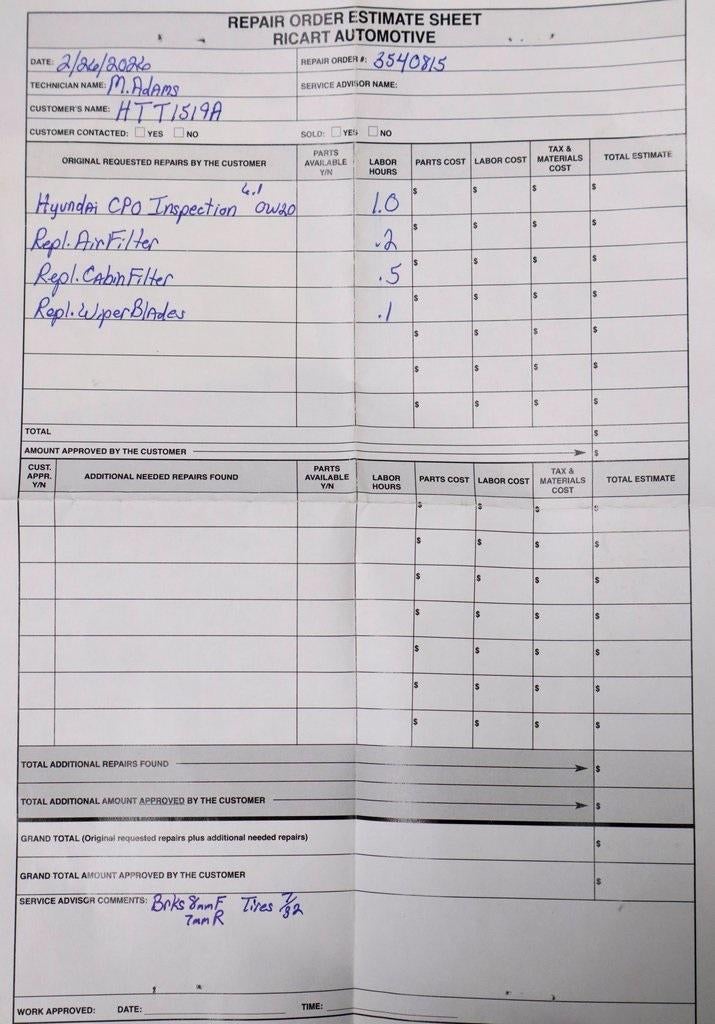 REPAIR ORDER ESTIMATE SHEET
RICART AUTOMOTIVE
DATE: 2/26/2026 REPAIR ORDER #: 3540815
TECHNICIAN NAME: M. Adams SERVICE ADVISOR NAME:
CUSTOMER'S NAME: HTT1519A
CUSTOMER CONTACTED: YES NO SOLD: YES NO
ORIGINAL REQUESTED REPAIRS BY THE CUSTOMER PARTS AVAILABLE Y/N LABOR HOURS PARTS COST LABOR COST TAX & MATERIALS COST TOTAL ESTIMATE
$ $ $ $
Hyundai CPO Inspection 4.1 0W20 1.0
Repl. Air Filter .2 $ $ $ $
Repl. Cabin Filter .5 $ $ $ $
Repl. Wiper Blades .1 $ $ $ $
$ $ $ $
$ $ $ $
$ $ $ $
TOTAL $
AMOUNT APPROVED BY THE CUSTOMER $
CUST. APPR. Y/N ADDITIONAL NEEDED REPAIRS FOUND PARTS AVAILABLE Y/N LABOR HOURS PARTS COST LABOR COST TAX & MATERIALS COST TOTAL ESTIMATE
$ $ $ $
$ $ $ $
$ $ $ $
$ $ $ $
$ $ $ $
$ $ $ $
$ $ $ $
TOTAL ADDITIONAL REPAIRS FOUND $
TOTAL ADDITIONAL AMOUNT APPROVED BY THE CUSTOMER $
GRAND TOTAL (Original requested repairs plus additional needed repairs) $
GRAND TOTAL AMOUNT APPROVED BY THE CUSTOMER $
SERVICE ADVISOR COMMENTS: Brks 8mm F Tires 7/32
7mm R
WORK APPROVED: DATE: TIME: